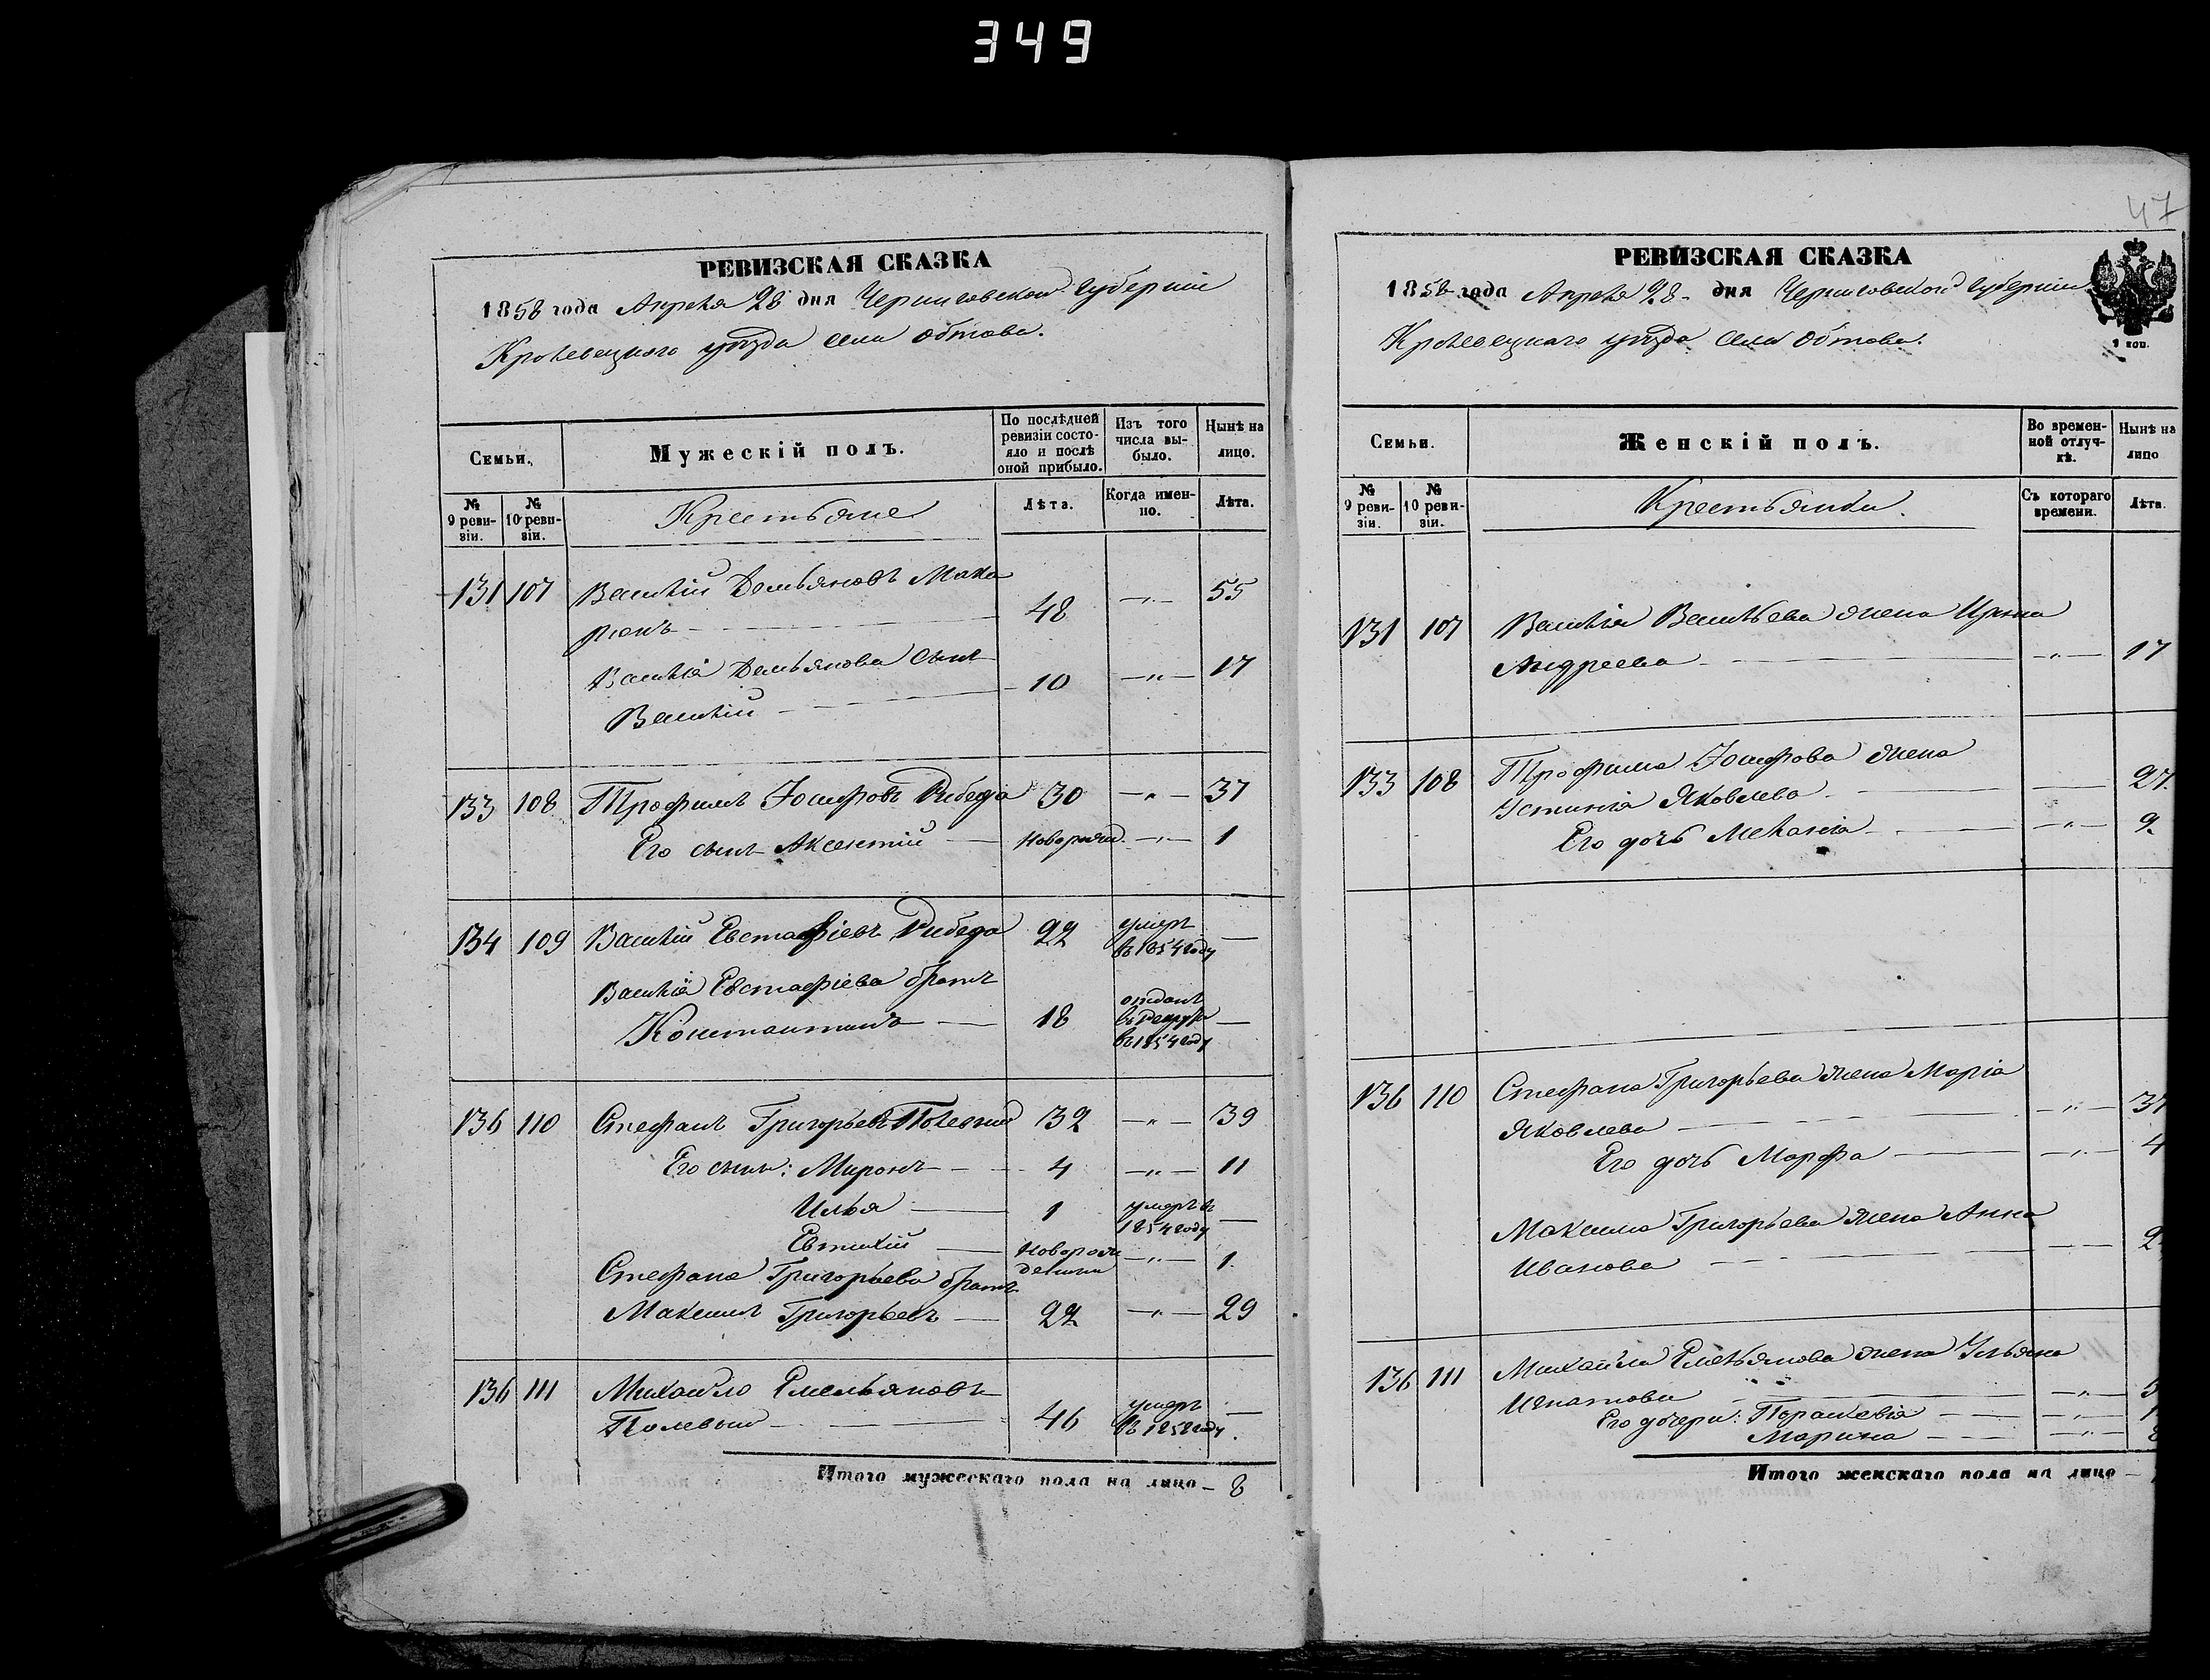 349
47
РЕВИЗСКАЯ СКАЗКА
1858 года Апреля 28 дня Черниговской Губерніи
Кролевецкого уѣзда села Обтова.
Семьи.
Мужескій полъ.
По послѣдней ревизіи состояло и послѣ оной прибыло.
Изъ того числа выбыло.
Нынѣ на лицо.
№ 9 ревизіи.
№ 10 ревизіи.
Крестьяне
Лѣта.
Когда именно.
Лѣта.
131 107 Василій Демьяновъ Мака
ренъ — 48 —„— 55
Василія Демьянова сынъ
Василій — 10 —„— 17
133 108 Трофимъ Іосифовъ Рибеда 30 —„— 37
Его сынъ Аксентій — новорожд. —„— 1
134 109 Василій Евстафіевъ Рибеда 22 умеръ въ 1854 году —
Василія Евстафіева братъ
Константинъ — 18 отданъ въ рекруты въ 1854 году —
136 110 Стефанъ Григорьевъ Полевый 32 —„— 39
Его сыны: Миронъ — 4 —„— 11
Илья — 1 умеръ въ 1854 году —
Евтихій — новорожденный —„— 1.
Стефана Григорьева братъ
Максимъ Григорьевъ — 22 —„— 29
136 111 Михайло Емельяновъ
Полевый — 46 умеръ въ 1852 году —.
Итого мужескаго пола на лицо — 8
РЕВИЗСКАЯ СКАЗКА
1858 года Апреля 28 дня Черниговской Губерніи
Кролевецкаго уѣзда села Обтова.
1 коп.
Семьи.
Женскій полъ.
Во временной отлучкѣ.
Нынѣ на лицо
№ 9 ревизіи.
№ 10 ревизіи.
Крестьянки.
Съ котораго времени.
Лѣта.
131 107 Василія Васильева жена Ирина
Андреева — —„— 17
133 108 Трофима Іосифова жена
Устинія Яковлева — — 27.
Его дочь Меланія — —„— 9.
136 110 Стефана Григорьева жена Марія
Яковлева — —„— 37
Его дочь Марфа — —„— 4
Максима Григорьева жена Анна
Иванова — — 2
136 111 Михайла Емельянова жена Ульяна
Игнатова — —„—
Его дочери: Параскевія — —„—
Марина — —„—
Итого женскаго пола на лицо —